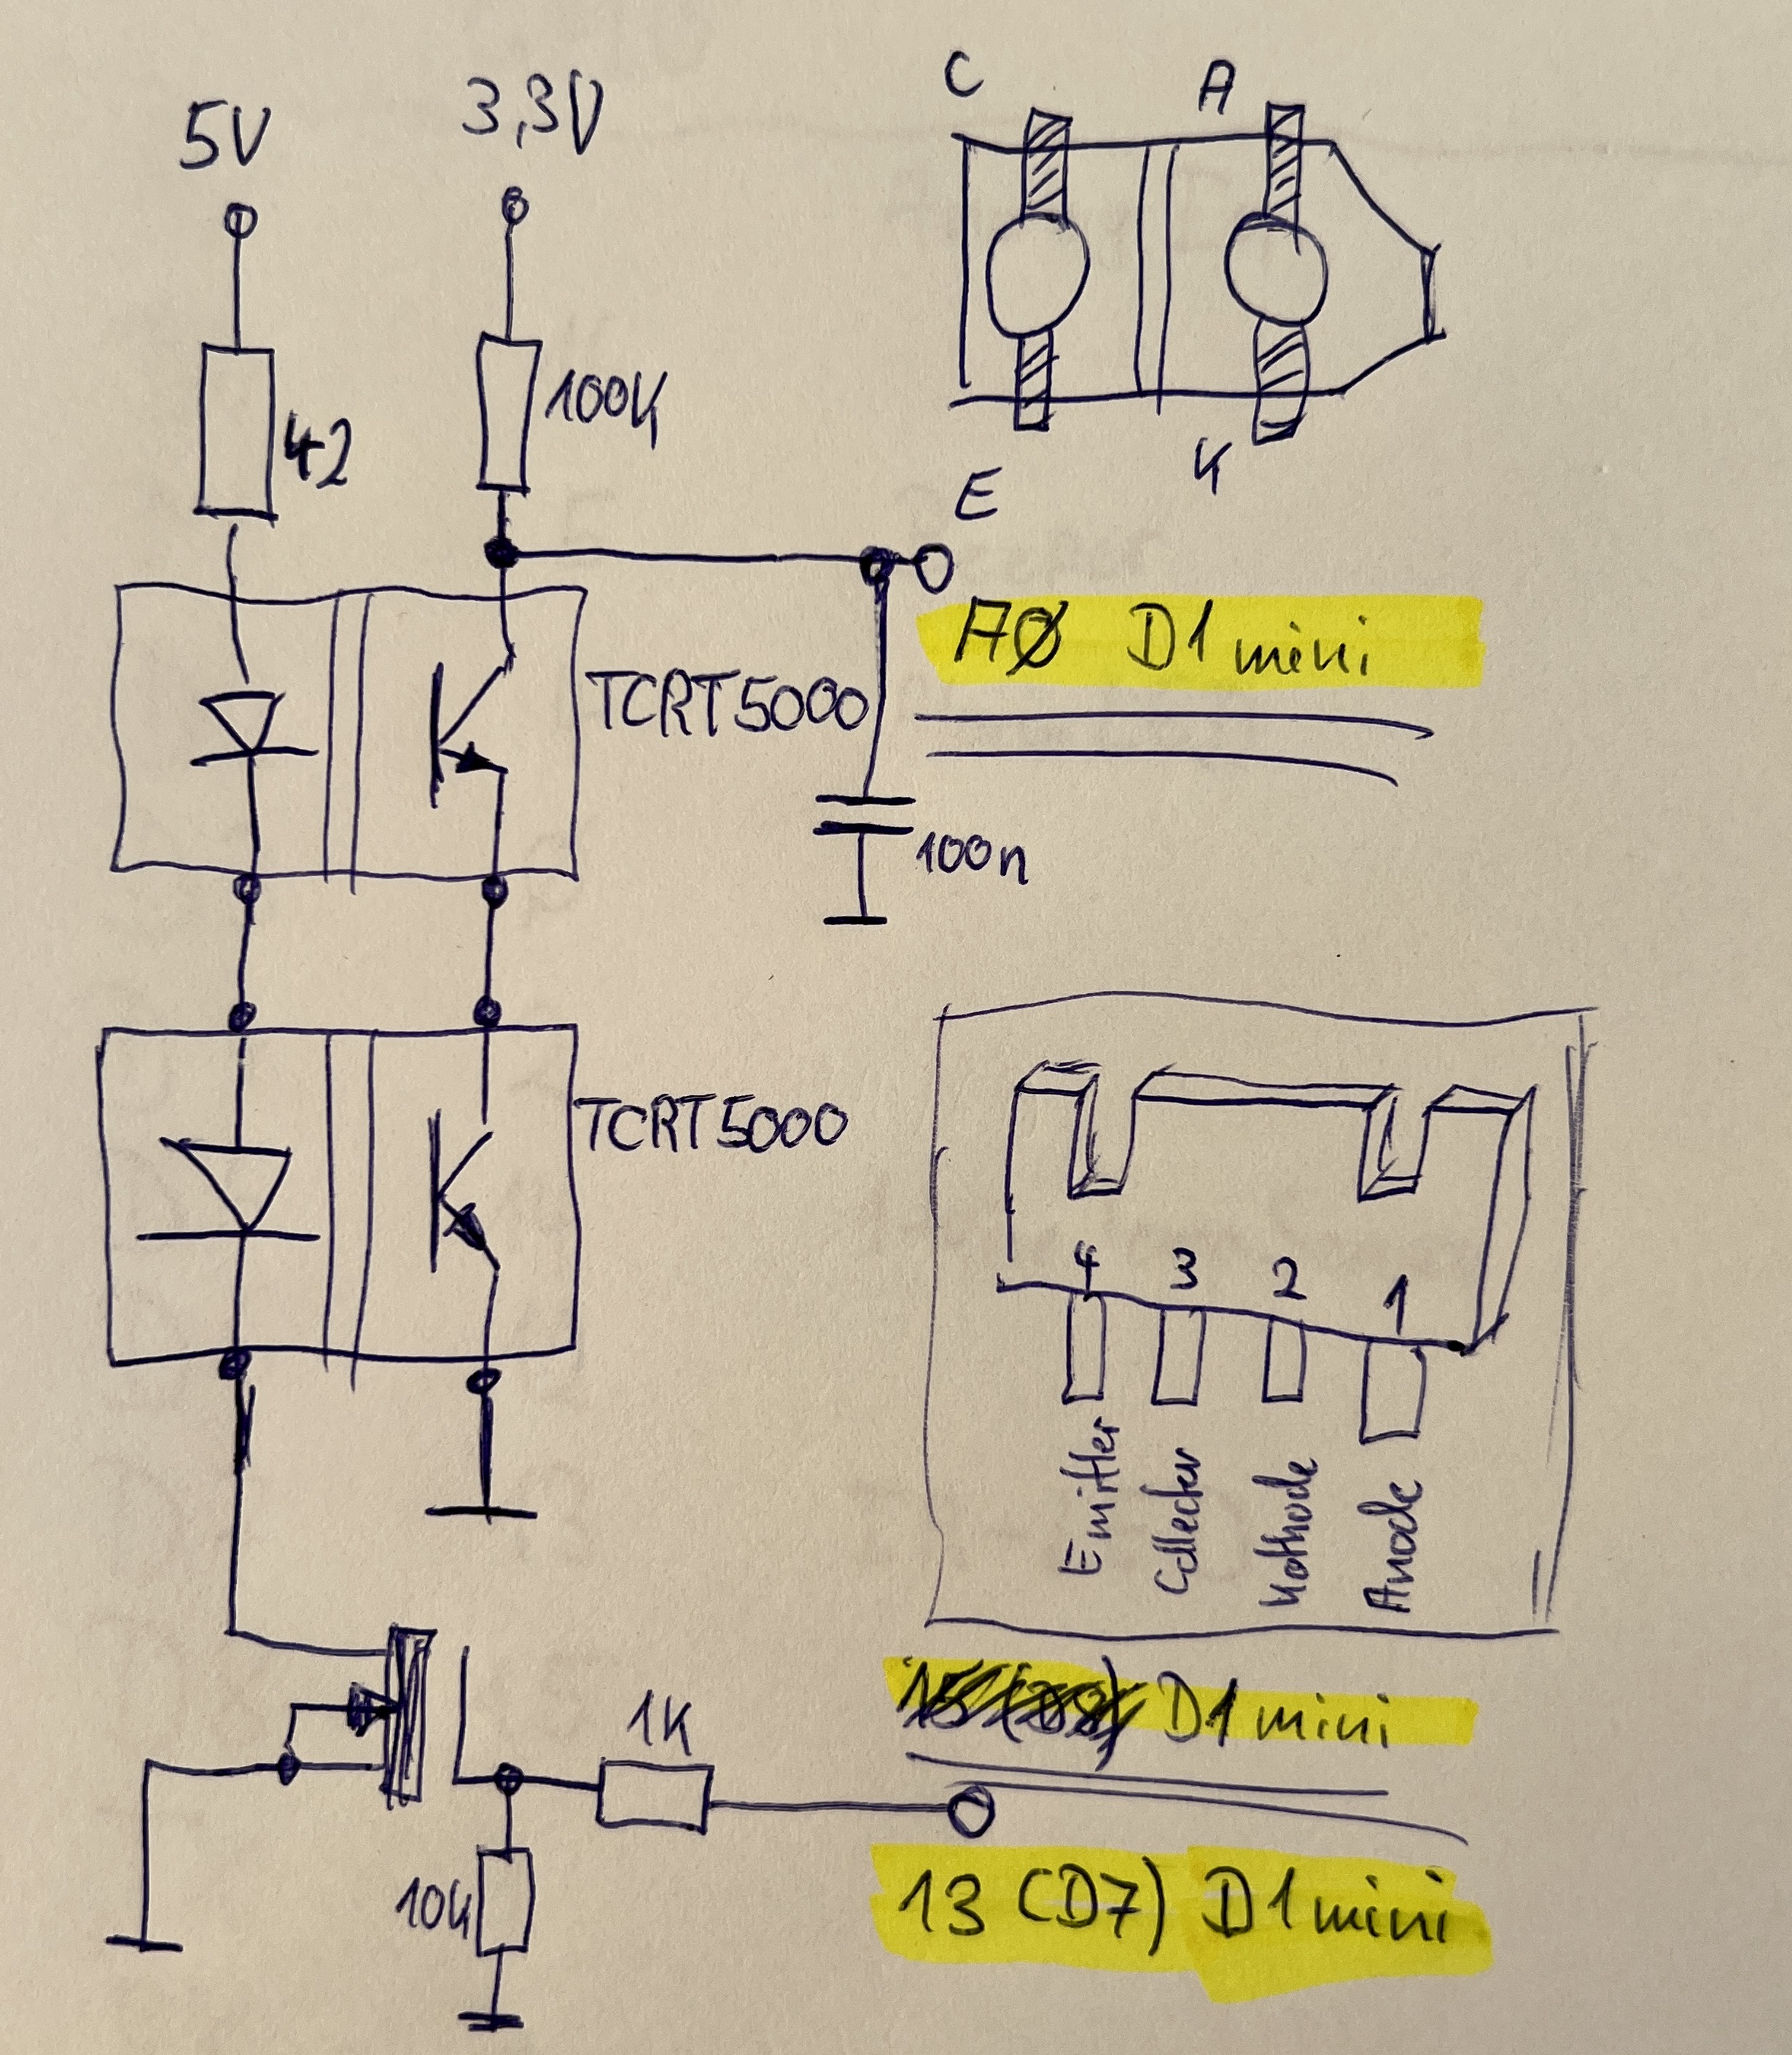 5V
3,3V
C
A
42
100K
K
E
AØ D1 mini
TCRT5000
100n
TCRT5000
4 3 2 1
Emitter
Collector
Kathode
Anode
D1 mini
1K
10k
13 (D7) D1 mini